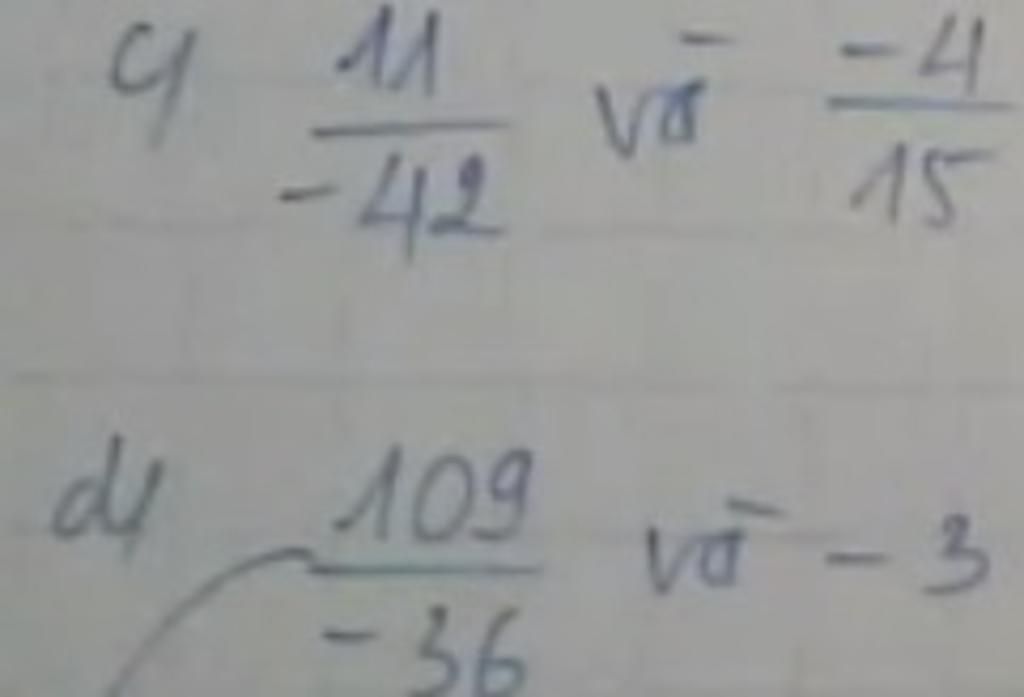 c) 11/-42 và -4/15
d) 109/-36 và -3